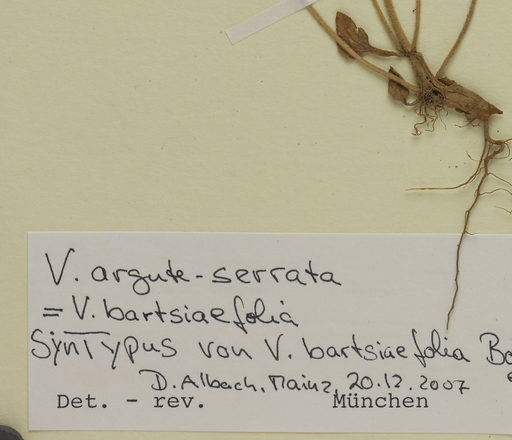 V. argute-serrata
= V. bartsiaefolia
Syntypus von V. bartsiaefolia Bo
D. Albach, Mainz, 20.12.2007
Det. - rev. München